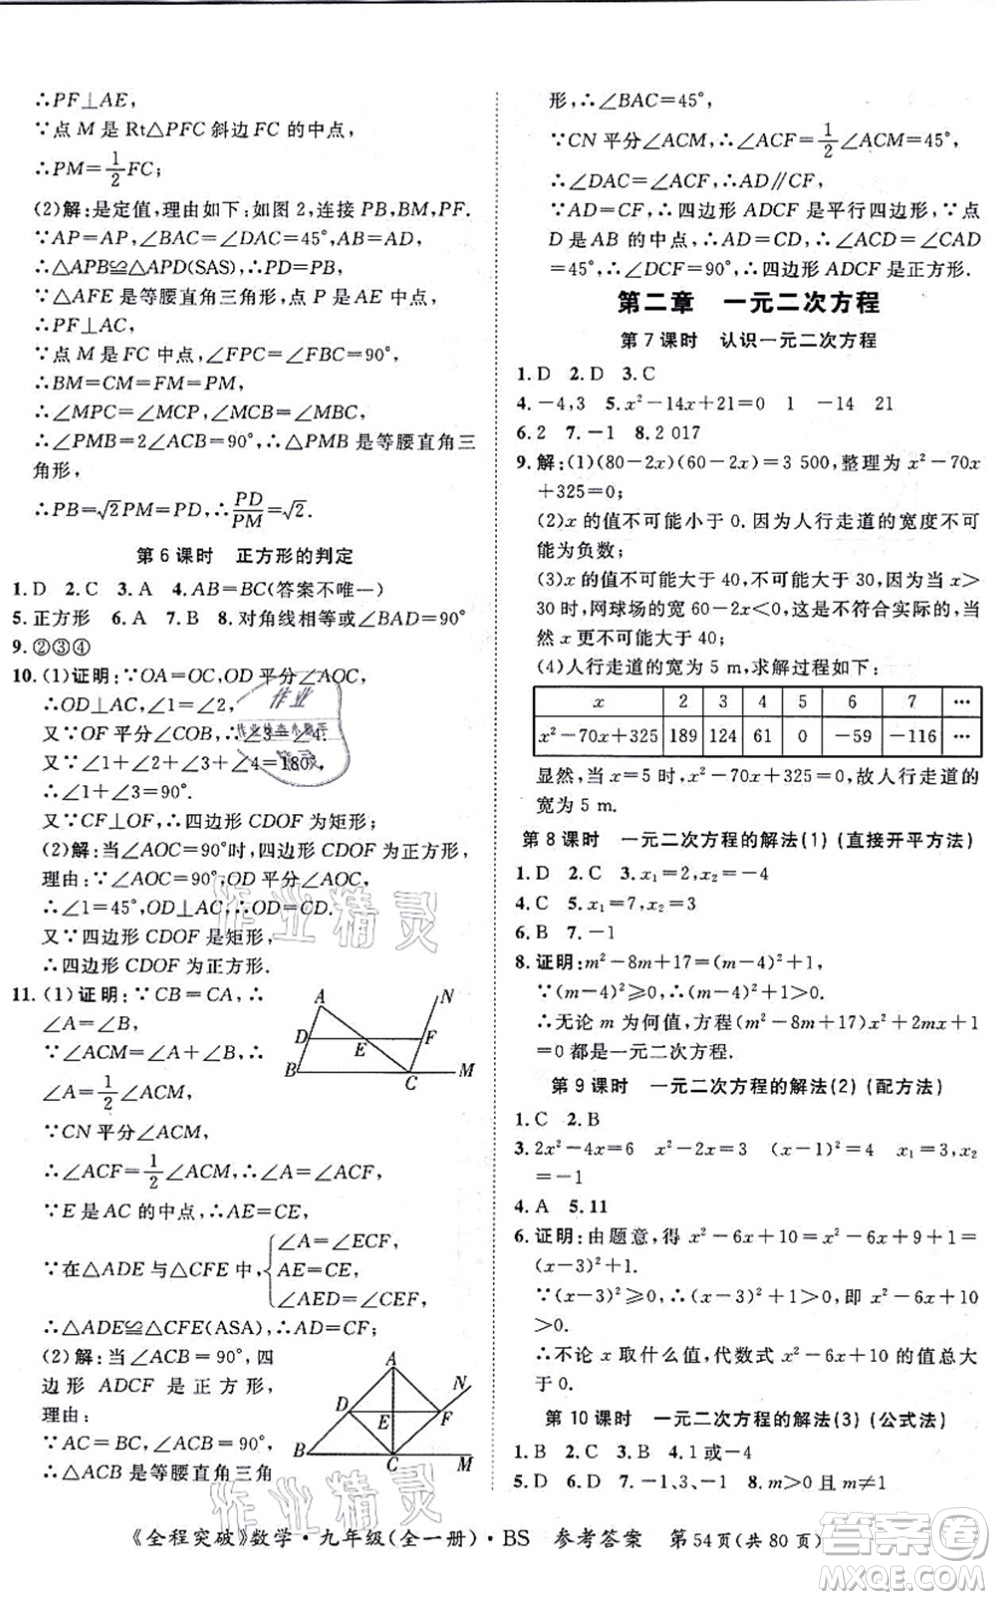 ∴PF⊥AE,
∵点 M 是 Rt△PFC 斜边 FC 的中点,
∴PM=1/2 FC;
(2)解:是定值,理由如下:如图 2,连接 PB,BM,PF.
∵AP=AP,∠BAC=∠DAC=45°,AB=AD,
∴△APB≌△APD(SAS),∴PD=PB,
∵△AFE 是等腰直角三角形,点 P 是 AE 的中点,
∴PF⊥AC,
∵点 M 是 FC 的中点,∠FPC=∠FBC=90°,
∴BM=CM=FM=PM,
∴∠MPC=∠MCP,∠MCB=∠MBC,
∴∠PMB=2∠ACB=90°,∴△PMB 是等腰直角三
角形,
∴PB=√2PM=PD,∴PD/PM=√2.
第 6 课时 正方形的判定
1. D 2. C 3. A 4. AB=BC(答案不唯一)
5. 正方形 6. A 7. B 8. 对角线相等或∠BAD=90°
9. ②③④
10. (1)证明:∵OA=OC,OD 平分∠AOC,
∴OD⊥AC,∠1=∠2,
又∵OF 平分∠COB,∴∠3=∠4.
又∵∠1+∠2+∠3+∠4=180°,
∴∠1+∠3=90°.
又∵CF⊥OF,∴四边形 CDOF 为矩形;
(2)解:当∠AOC=90°时,四边形 CDOF 为正方形,
理由:∵∠AOC=90°,OD 平分∠AOC,
∴∠1=45°,OD⊥AC,∴OD=CD.
又∵四边形 CDOF 是矩形,
∴四边形 CDOF 为正方形.
11. (1)证明:∵CB=CA,∴
∠A=∠B,
∵∠ACM=∠A+∠B,∴
∠A=1/2∠ACM,
A N D E F B C M
∵CN 平分∠ACM,
∴∠ACF=1/2∠ACM,∴∠A=∠ACF,
∵E 是 AC 的中点,∴AE=CE,
∵在△ADE 与△CFE 中,{∠A=∠ECF,
AE=CE,
∠AED=∠CEF,
∴△ADE≌△CFE(ASA),∴AD=CF;
(2)解:当∠ACB=90°,四
边形 ADCF 是正方形,理
由如下:
∵AC=BC,∠ACB=90°,
∴△ABC 是等腰直角三角
A N D E F B C M
形,∴∠BAC=45°,
∵CN 平分∠ACM,∴∠ACF=1/2∠ACM=45°,
∴∠DAC=∠ACF,∴AD∥CF,
∵AD=CF,∴四边形 ADCF 是平行四边形,∵点
D 是 AB 的中点,∴AD=CD,∴∠ACD=∠CAD
=45°,∴∠DCF=90°,∴四边形 ADCF 是正方形.
第二章 一元二次方程
第 7 课时 认识一元二次方程
1. D 2. D 3. C
4. -4,3 5. x²-14x+21=0 1 -14 21
6. 2 7. -1 8. 2 017
9. 解:(1)(80-2x)(60-2x)=3 500,整理为 x²-70x
+325=0;
(2)x 的值不可能小于 0. 因为人行走道的宽度不可能
为负数;
(3)x 的值不可能大于 40,更不可能大于 30,因为 x>
30 时,网球场的宽 60-2x<0,这是不符合实际的,当
然 x 更不可能大于 40;
(4)人行走道的宽为 5 m,求解过程如下:
x 2 3 4 5 6 7 …
x²-70x+325 189 124 61 0 -59 -116 …
显然,当 x=5 时,x²-70x+325=0,故人行走道的
宽为 5 m.
第 8 课时 一元二次方程的解法(1)(直接开平方法)
1. D 2. C 3. x₁=2,x₂=-4
4. C 5. x₁=7,x₂=3
6. B 7. -1
8. 证明:m²-8m+17=(m-4)²+1,
∵(m-4)²≥0,∴(m-4)²+1>0,
∴无论 m 为何值,方程(m²-8m+17)x²+2mx+1
=0 都是一元二次方程.
第 9 课时 一元二次方程的解法(2)(配方法)
1. C 2. B
3. 2x²-4x=6 x²-2x=3 (x-1)²=4 x₁=3,x₂
=-1
4. A 5. 11
6. 证明:由题意,得 x²-6x+10=x²-6x+9-9+10=
(x-3)²+1.
∵(x-3)²≥0,∴(x-3)²+1>0,即 x²-6x+10
>0.
∴不论 x 取什么值,代数式 x²-6x+10 的值总大
于 0.
第 10 课时 一元二次方程的解法(3)(公式法)
1. B 2. C 3. B 4. 1 或-4
5. D 6. D 7. -1、3、-1 8. m>1/2 且 m≠1
《全程突破》数学·九年级(全一册)·BS 参考答案 第 54 页(共 80 页)
作业精灵
作业精灵
答案圈
MXQE.COM